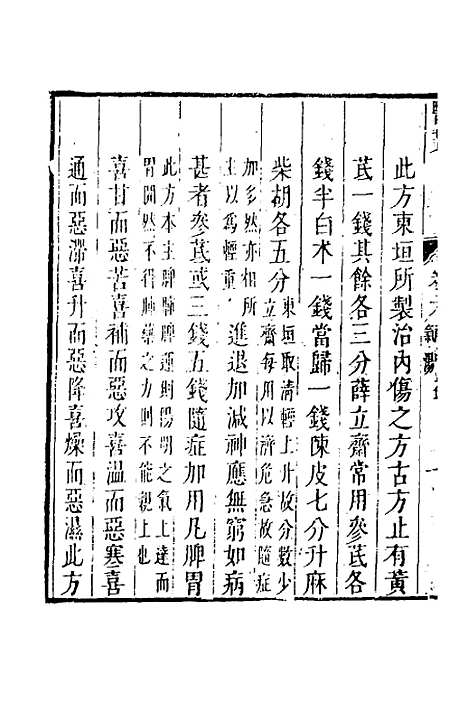 此方東垣所製治内傷之方古方止有黄
芪一錢其餘各三分薛立齋常用參芪各
錢半白术一錢當歸一錢陳皮七分升麻
柴胡各五分
東垣取清輕上升故分數少
立齋每用以濟危急故隨症
加多然亦相所
主以爲輕重
進退加減神應無窮如病
甚者參芪或三錢五錢隨症加用凡脾胃
此方本主脾
脾運則陽明之氣上達而
胃開然不得
之力則不能親上也
喜甘而惡苦喜補而惡攻喜温而惡寒喜
通而惡滯喜升而惡降喜燥而惡濕此方